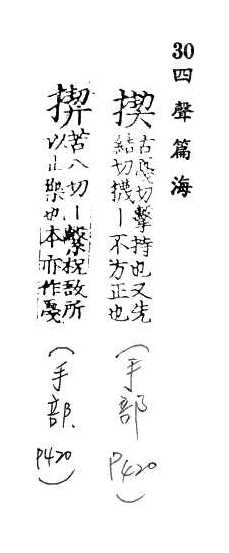 30四聲篇海
揳 古戞切擊持也又先
結切丨不方正也
（手部 P420）
苦八切丨繫柷敔所
以止樂也本亦作戞
（手部 P420）